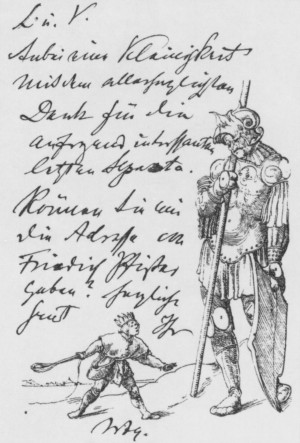 L. u. V.
Anbei eine Kleinigkeit
mit dem allerherzlichsten
Dank für die
aufregend interessanten
letzten Separata.
Können Sie mir
die Adresse von
Friedrich Pfister
geben? herzliche
Grüße Ihr
Wbg.